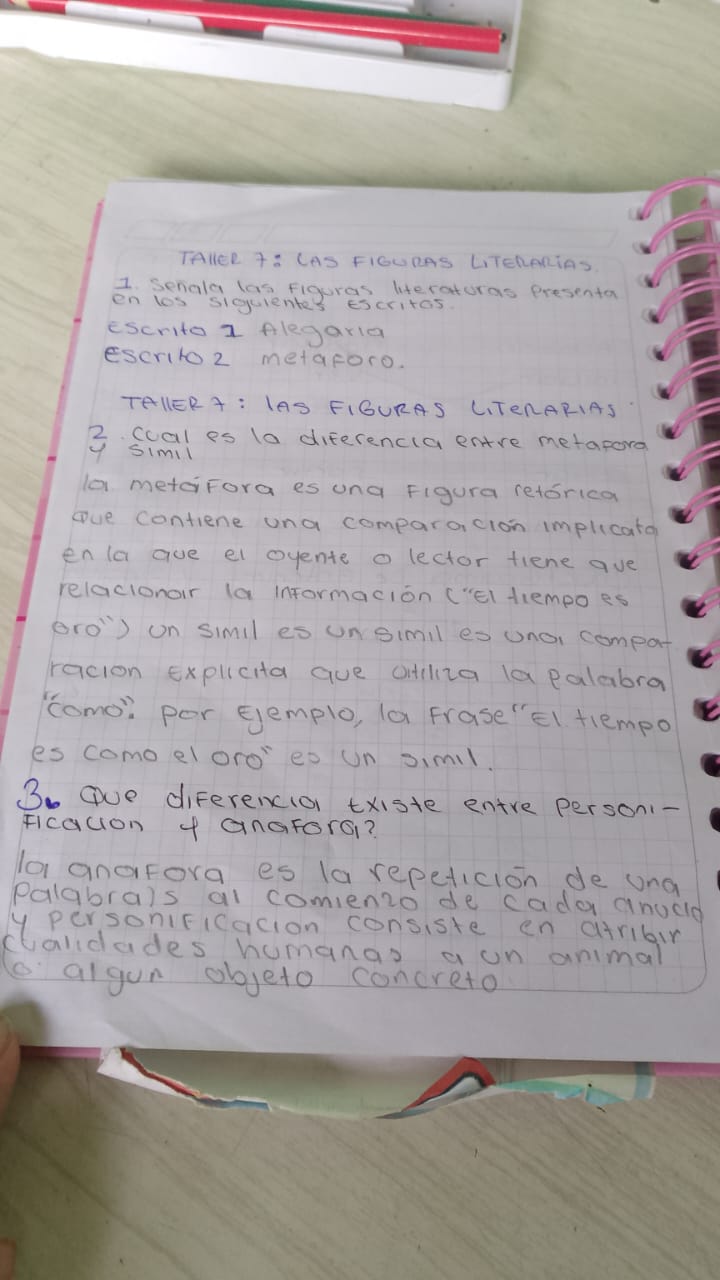 TALLER 7: LAS FIGURAS LITERARIAS.
1. Señala las figuras literaturas presenta
en los siguientes escritos.
escrito 1 Alegaria
escrito 2 metaforo.
TALLER 7: LAS FIGURAS LITERARIAS
2. cual es la diferencia entre metafora
y simil
la metáfora es una figura retórica
que contiene una comparación implicata
en la que el oyente o lector tiene que
relacionar la información ("El tiempo es
oro") un simil es un simil es una compa-
racion explicita que utiliza la palabra
"como". por ejemplo, la frase "El tiempo
es como el oro" es un simil.
3. que diferencia existe entre personi-
ficacion y anafora?
la anafora es la repetición de una
palabra/s al comienzo de cada anucio
y personificacion consiste en atribir
cualidades humanas a un animal
o algun objeto concreto.